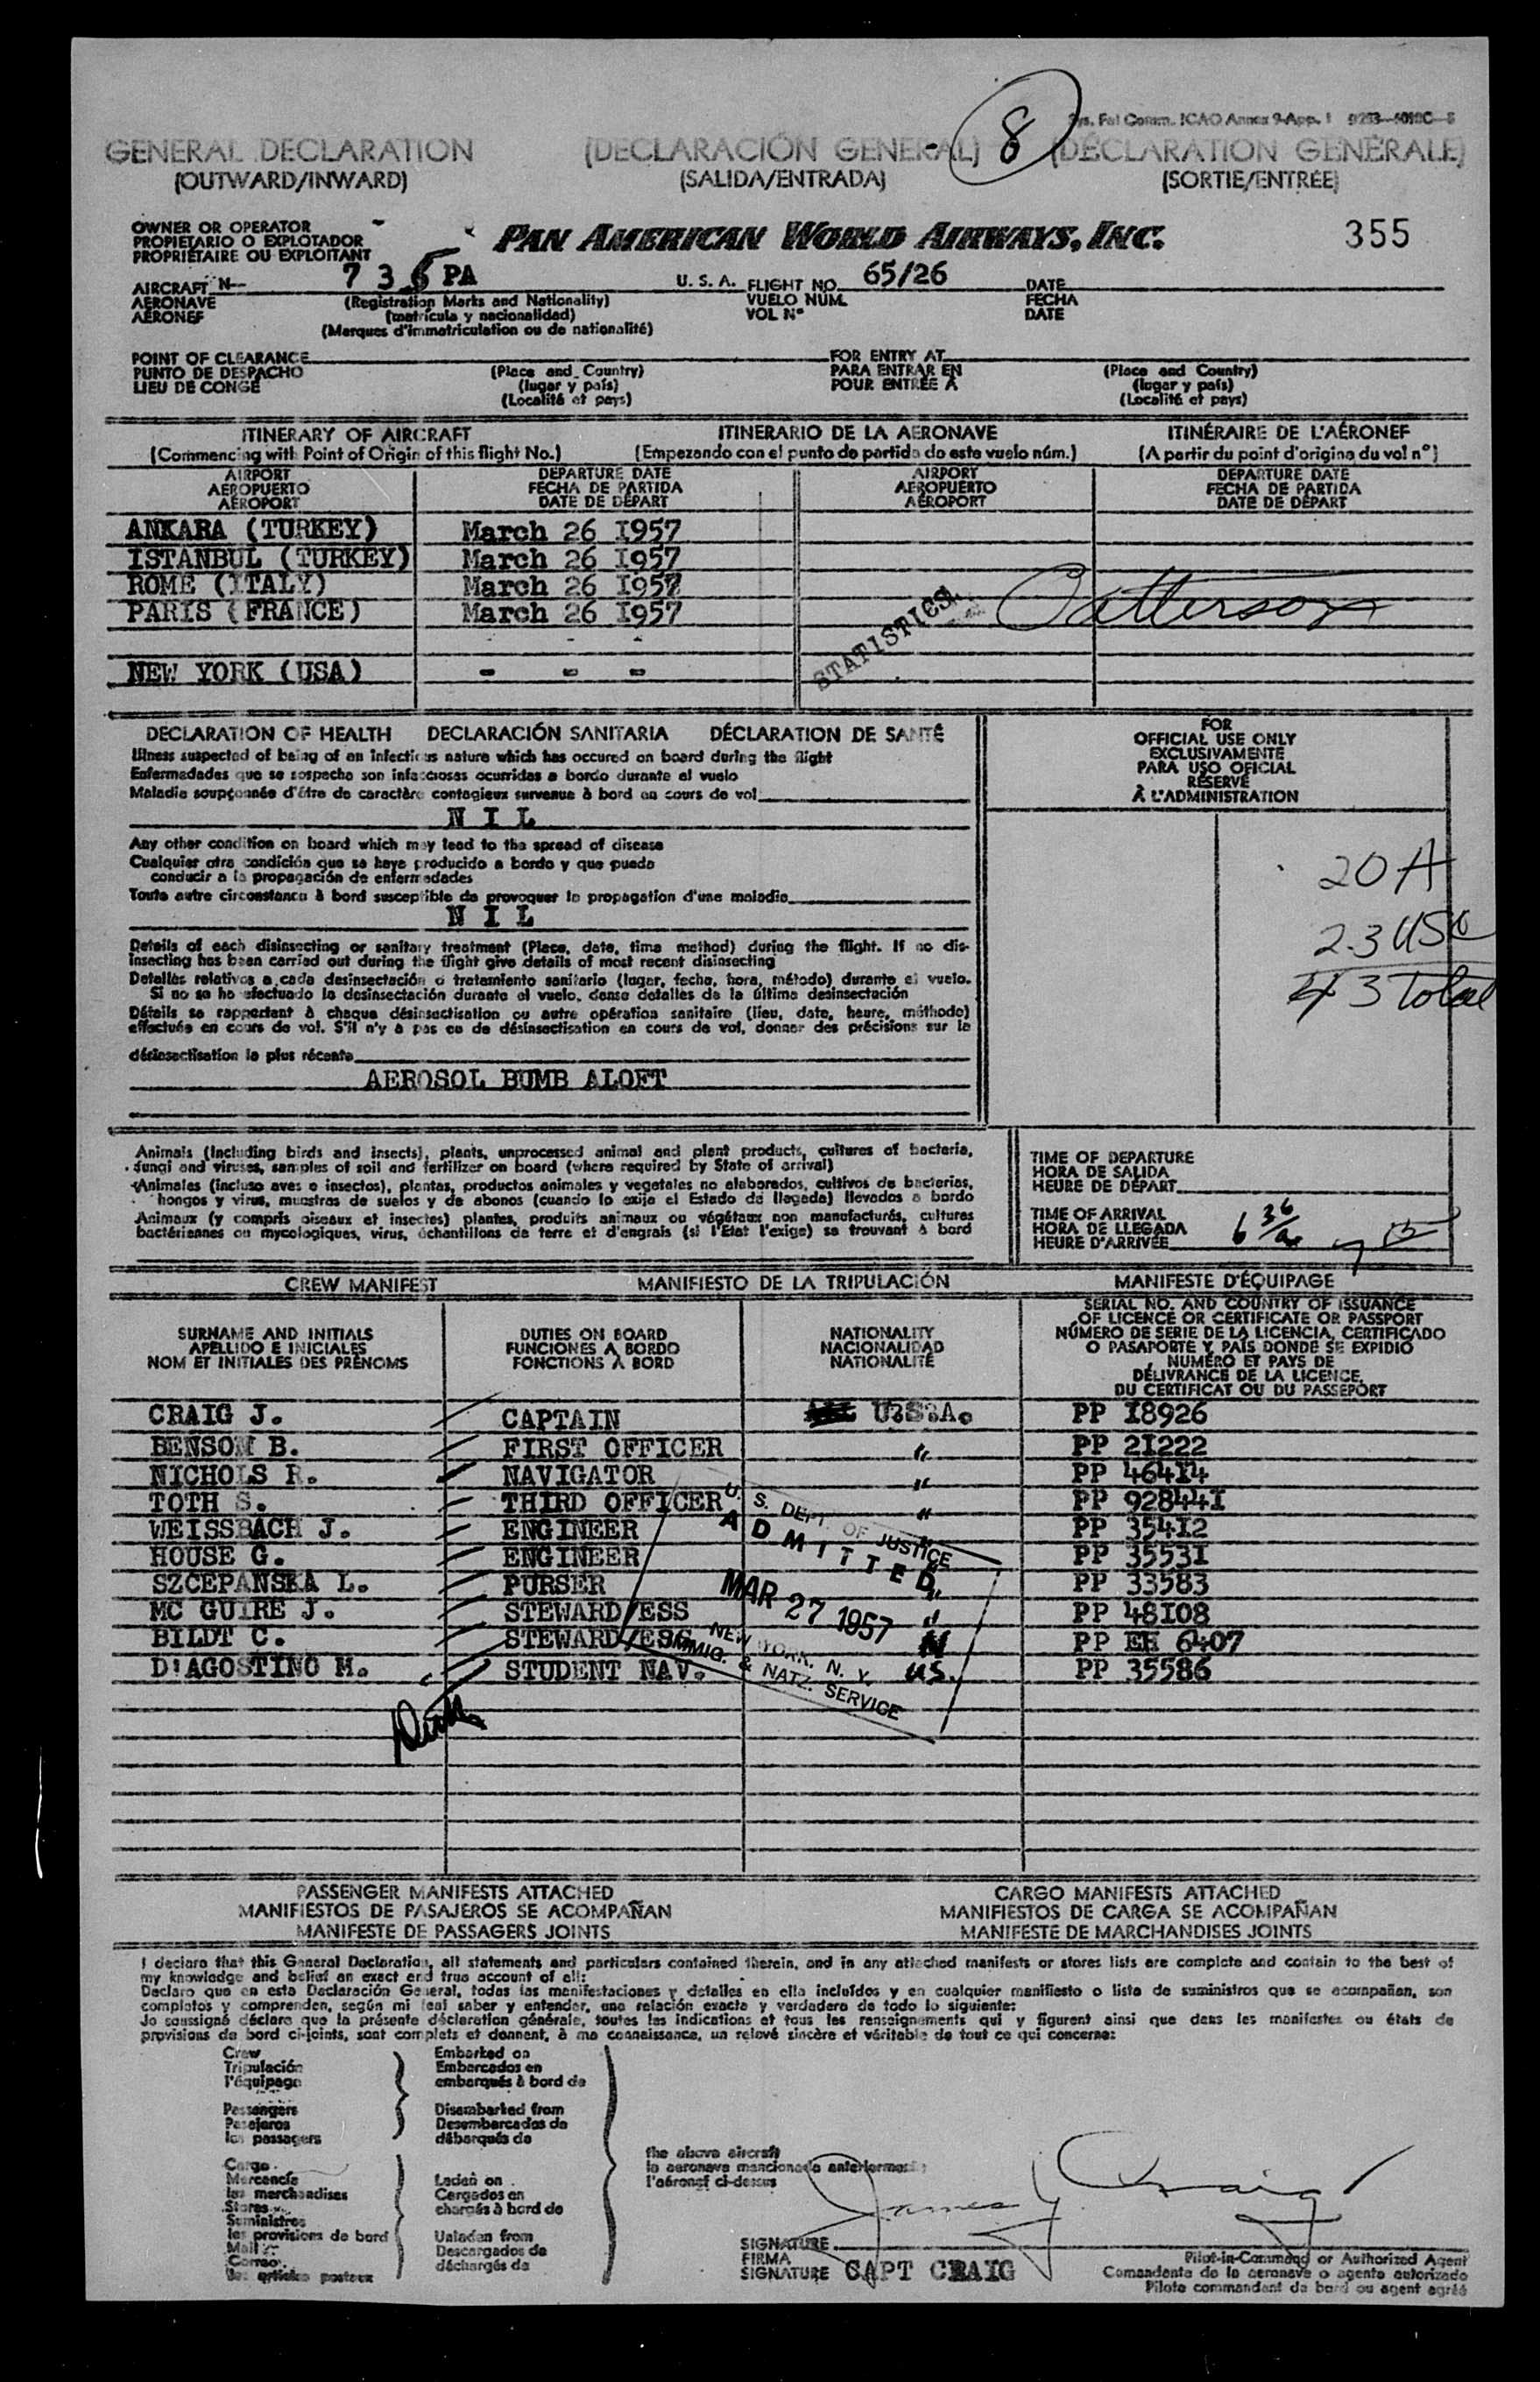 8
Sys. Fal Comm. ICAO Annex 9-App. I
GENERAL DECLARATION (DECLARACIÓN GENERAL) (DÉCLARATION GÉNÉRALE)
(OUTWARD/INWARD) (SALIDA/ENTRADA) (SORTIE/ENTRÉE)
OWNER OR OPERATOR
PROPIETARIO O EXPLOTADOR
PROPRIÉTAIRE OU EXPLOITANT
PAN AMERICAN WORLD AIRWAYS, INC. 355
AIRCRAFT N— 735 PA U. S. A. FLIGHT NO. 65/26 DATE
AERONAVE (Registration Marks and Nationality) VUELO NÚM. FECHA
AÉRONEF (matrícula y nacionalidad) VOL Nº DATE
(Marques d'immatriculation ou de nationalité)
POINT OF CLEARANCE FOR ENTRY AT
PUNTO DE DESPACHO (Place and Country) PARA ENTRAR EN (Place and Country)
LIEU DE CONGÉ (lugar y país) POUR ENTRÉE À (lugar y país)
(Localité et pays) (Localité et pays)
ITINERARY OF AIRCRAFT ITINERARIO DE LA AERONAVE ITINÉRAIRE DE L'AÉRONEF
(Commencing with Point of Origin of this flight No.) (Empezando con el punto de partida de este vuelo núm.) (A partir du point d'origine du vol nº)
AIRPORT DEPARTURE DATE AIRPORT DEPARTURE DATE
AEROPUERTO FECHA DE PARTIDA AEROPUERTO FECHA DE PARTIDA
AÉROPORT DATE DE DÉPART AÉROPORT DATE DE DÉPART
ANKARA (TURKEY) March 26 1957
ISTANBUL (TURKEY) March 26 1957
ROME (ITALY) March 26 1957
PARIS (FRANCE) March 26 1957
STATISTICS
Patterson
NEW YORK (USA) - - -
DECLARATION OF HEALTH DECLARACIÓN SANITARIA DÉCLARATION DE SANTÉ
Illness suspected of being of an infectious nature which has occured on board during the flight
Enfermedades que se sospecha son infecciosas ocurridas a bordo durante el vuelo
Maladie soupçonnée d'être de caractère contagieux survenue à bord en cours de vol
NIL
Any other condition on board which may lead to the spread of disease
Cualquier otra condición que se haya producido a bordo y que pueda
conducir a la propagación de enfermedades
Toute autre circonstance à bord susceptible de provoquer la propagation d'une maladie
NIL
Details of each disinsecting or sanitary treatment (Place, date, time method) during the flight. If no dis-
insecting has been carried out during the flight give details of most recent disinsecting
Detalles relativos a cada desinsectación o tratamiento sanitario (lugar, fecha, hora, método) durante el vuelo.
Si no se ha efectuado la desinsectación durante el vuelo, dense detalles de la última desinsectación
Détails se rapportant à chaque désinsectisation ou autre opération sanitaire (lieu, date, heure, méthode)
effectuée en cours de vol. S'il n'y a pas eu de désinsectisation en cours de vol, donner des précisions sur la
désinsectisation la plus récente
AEROSOL BOMB ALOFT
FOR
OFFICIAL USE ONLY
EXCLUSIVAMENTE
PARA USO OFICIAL
RÉSERVÉ
À L'ADMINISTRATION
20 A
23 USC
43 Total
Animals (Including birds and insects), plants, unprocessed animal and plant products, cultures of bacteria,
fungi and viruses, samples of soil and fertilizer on board (where required by State of arrival)
Animales (incluso aves e insectos), plantas, productos animales y vegetales no elaborados, cultivos de bacterias,
hongos y virus, muestras de suelos y de abonos (cuando lo exija el Estado de llegada) llevados a bordo
Animaux (y compris oiseaux et insectes) plantes, produits animaux ou végétaux non manufacturés, cultures
bactériennes ou mycologiques, virus, échantillons de terre et d'engrais (si l'Etat l'exige) se trouvant à bord
TIME OF DEPARTURE
HORA DE SALIDA
HEURE DE DÉPART
TIME OF ARRIVAL
HORA DE LLEGADA
HEURE D'ARRIVÉE 6 36
CREW MANIFEST MANIFIESTO DE LA TRIPULACIÓN MANIFESTE D'ÉQUIPAGE
SURNAME AND INITIALS
APELLIDO E INICIALES
NOM ET INITIALES DES PRÉNOMS
DUTIES ON BOARD
FUNCIONES A BORDO
FONCTIONS À BORD
NATIONALITY
NACIONALIDAD
NATIONALITÉ
SERIAL NO. AND COUNTRY OF ISSUANCE
OF LICENCE OR CERTIFICATE OR PASSPORT
NÚMERO DE SERIE DE LA LICENCIA, CERTIFICADO
O PASAPORTE Y PAÍS DONDE SE EXPIDIÓ
NUMÉRO ET PAYS DE
DÉLIVRANCE DE LA LICENCE,
DU CERTIFICAT OU DU PASSEPORT
CRAIG J. CAPTAIN U.S.A. PP 18926
BENSOM B. FIRST OFFICER " PP 21222
NICHOLS R. NAVIGATOR " PP 46414
TOTH S. THIRD OFFICER " PP 928441
WEISSBACH J. ENGINEER PP 35412
HOUSE G. ENGINEER PP 35531
SZCEPANSKA L. PURSER " PP 33583
MC GUIRE J. STEWARD/ESS " PP 48108
BILDT C. STEWARD/ESS N PP EE 6407
D'AGOSTINO M. STUDENT NAV. US. PP 35586
U. S. DEPT. OF JUSTICE
ADMITTED
MAR 27 1957
NEW YORK, N. Y.
IMMIG. & NATZ. SERVICE
PASSENGER MANIFESTS ATTACHED CARGO MANIFESTS ATTACHED
MANIFIESTOS DE PASAJEROS SE ACOMPAÑAN MANIFIESTOS DE CARGA SE ACOMPAÑAN
MANIFESTE DE PASSAGERS JOINTS MANIFESTE DE MARCHANDISES JOINTS
I declare that this General Declaration, all statements and particulars contained therein, and in any attached manifests or stores lists are complete and contain to the best of
my knowledge and belief an exact and true account of all:
Declaro que en esta Declaración General, todas las manifestaciones y detalles en ella incluídos y en cualquier manifiesto o lista de suministros que se acompañan, son
completos y comprenden, según mi leal saber y entender, una relación exacta y verdadera de todo lo siguiente:
Je soussigné déclare que la présente déclaration générale, toutes les indications et tous les renseignements qui y figurent ainsi que dans les manifestes ou états de
provisions de bord ci-joints, sont complets et donnent, à ma connaissance, un relevé sincère et véritable de tout ce qui concerne:
Crew Embarked on
Tripulación Embarcados en
l'équipage embarqués à bord de
Passengers Disembarked from
Pasajeros Desembarcados de
les passagers débarqués de
the above aircraft
la aeronave mencionada anteriormente
l'aéronef ci-dessus
Cargo
Mercancía Laden on
les marchandises Cargados en
Stores chargés à bord de
Suministros
les provisions de bord Unladen from
Mail Descargados de
Correo déchargés de
les articles postaux
James Craig
SIGNATURE
FIRMA
SIGNATURE CAPT CRAIG
Pilot-in-Command or Authorized Agent
Comandante de la aeronave o agente autorizado
Pilote commandant de bord ou agent agréé